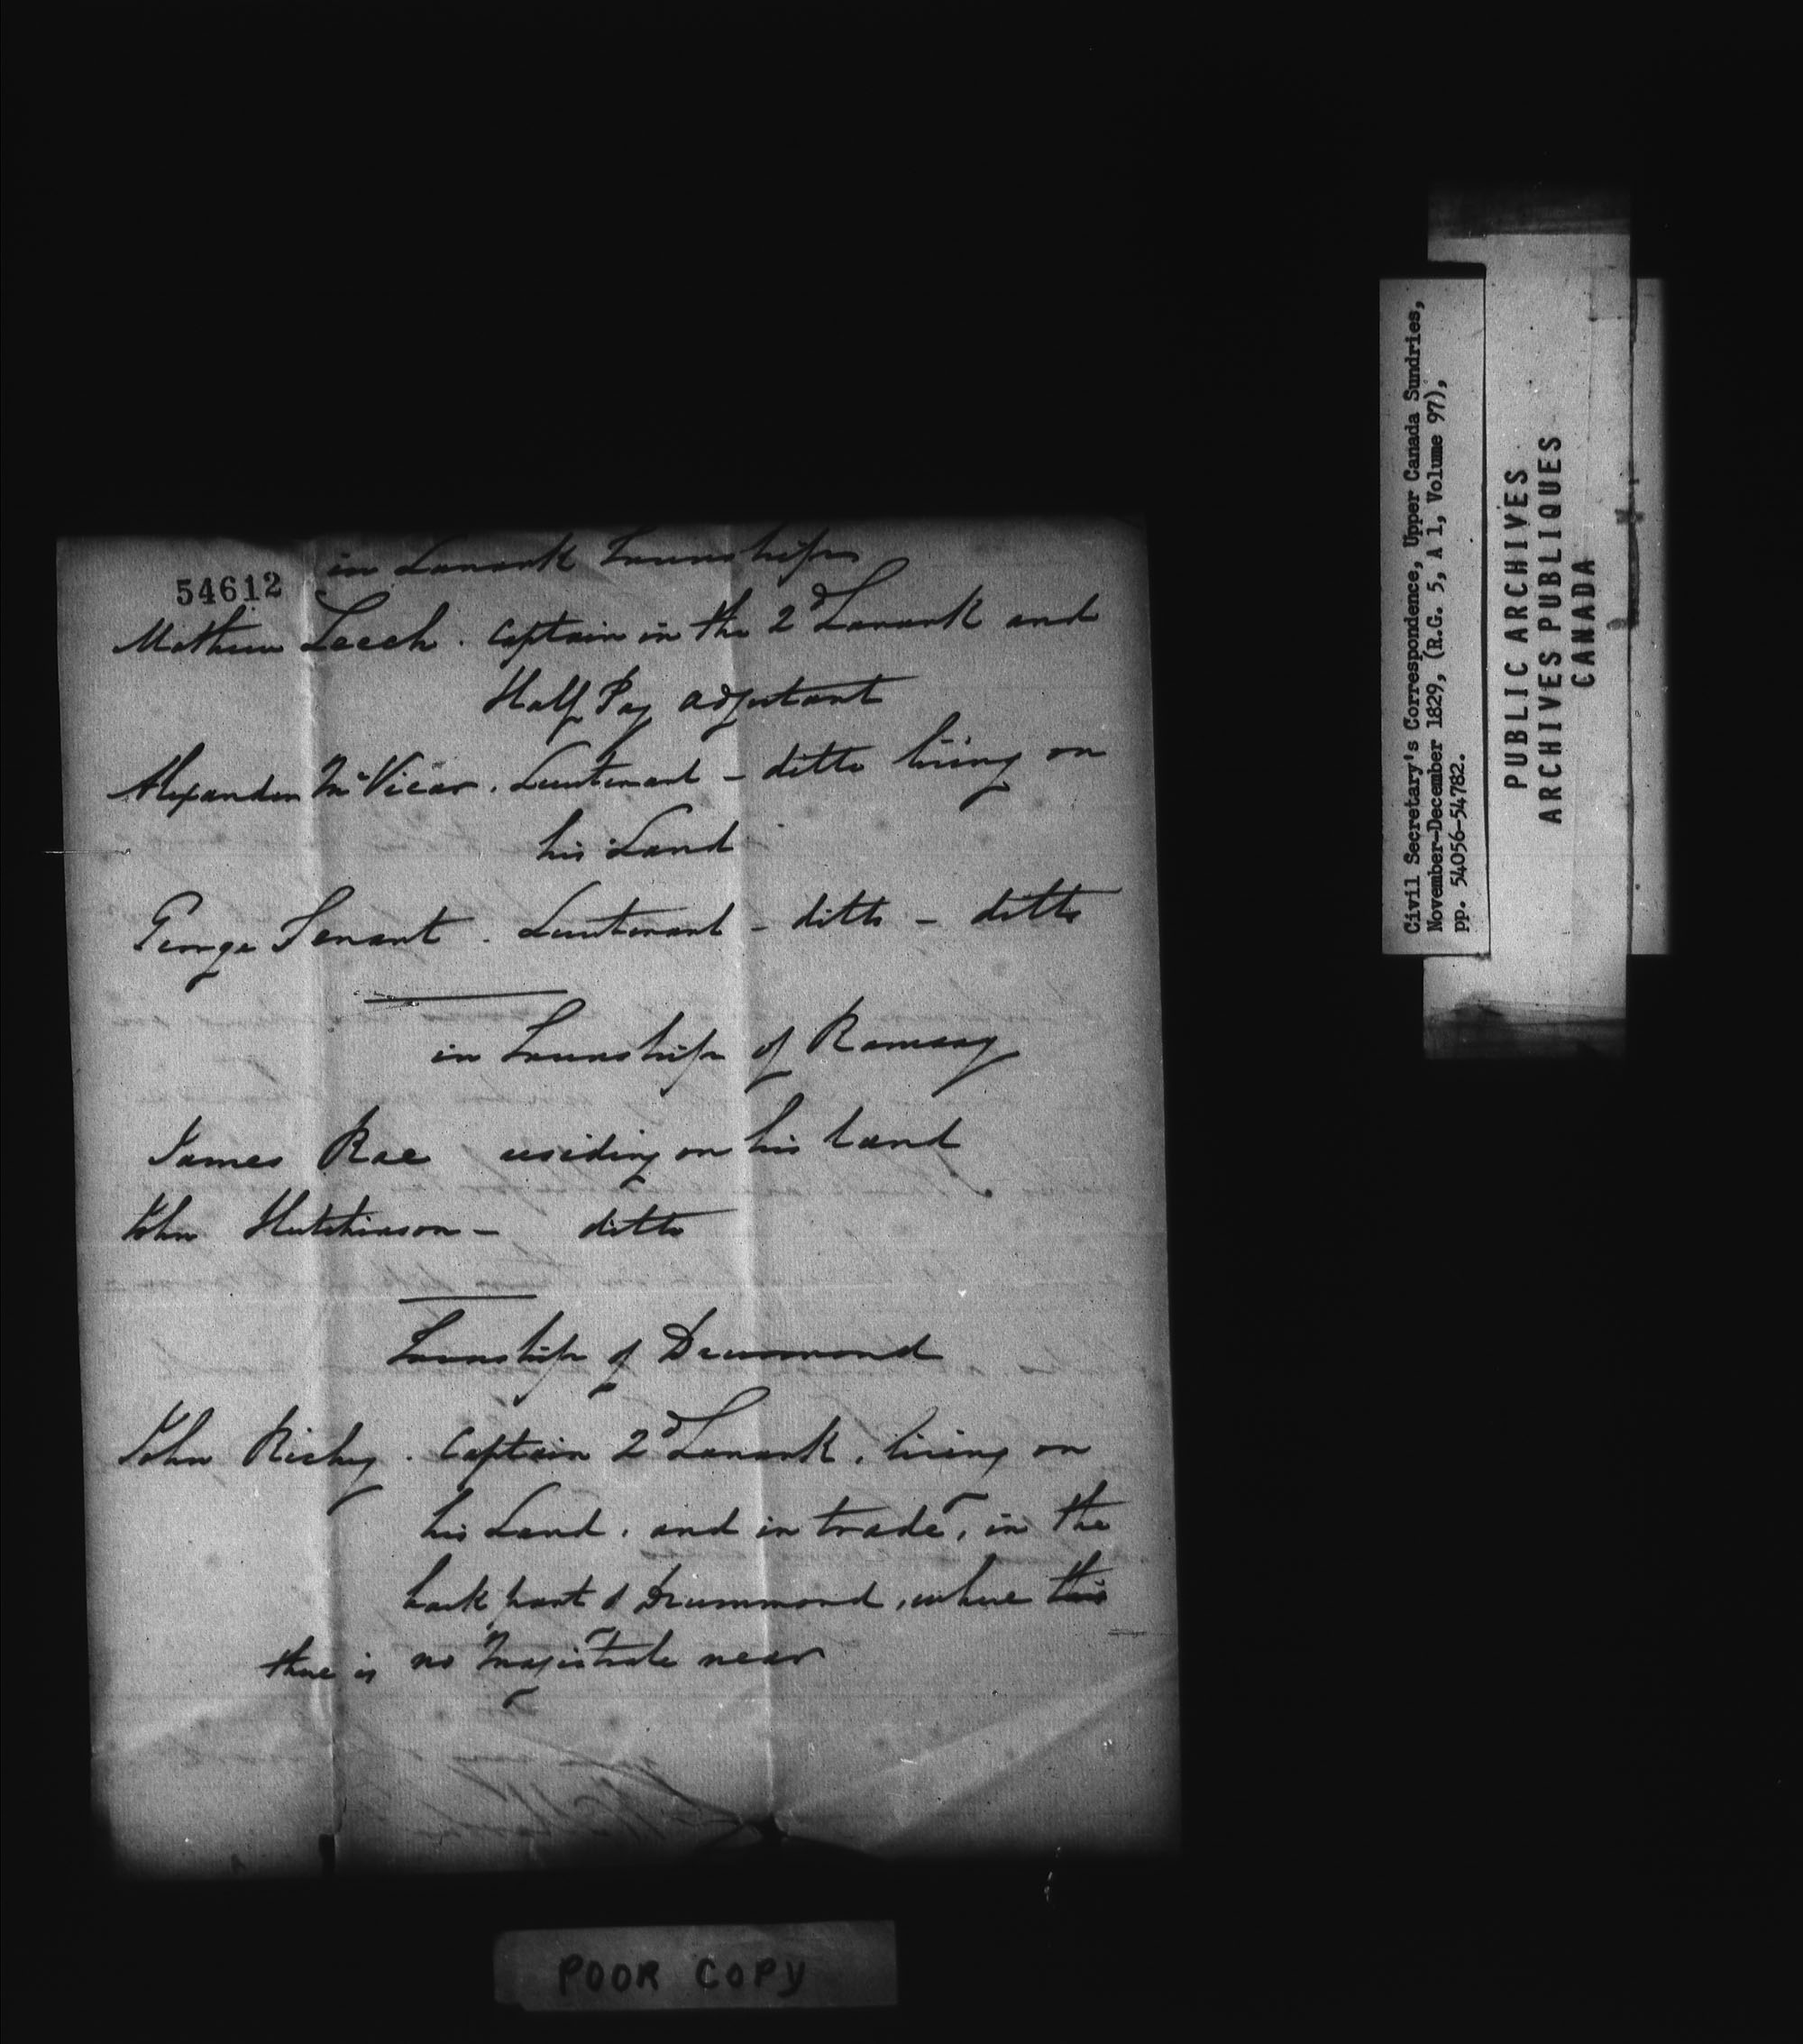 in Lanark Township
54612
Mathew Leech. Captain in the 2d Lanark and
Half Pay adjutant
Alexander McVicar. Lieutenant - ditto living on
his Land
George Tenant. Lieutenant - ditto - ditto
in Township of Ramsay
James Rae residing on his land
John Hutchinson - ditto
Township of Drummond
John Richy. Captain 2d Lanark, living on
his Land, and in trade, in the
back part of Drummond, where this
there is no Magistrate near
POOR COPY
Civil Secretary's Correspondence, Upper Canada Sundries,
November-December 1829, (R.G. 5, A 1, Volume 97),
pp. 54056-54782.
PUBLIC ARCHIVES
ARCHIVES PUBLIQUES
CANADA